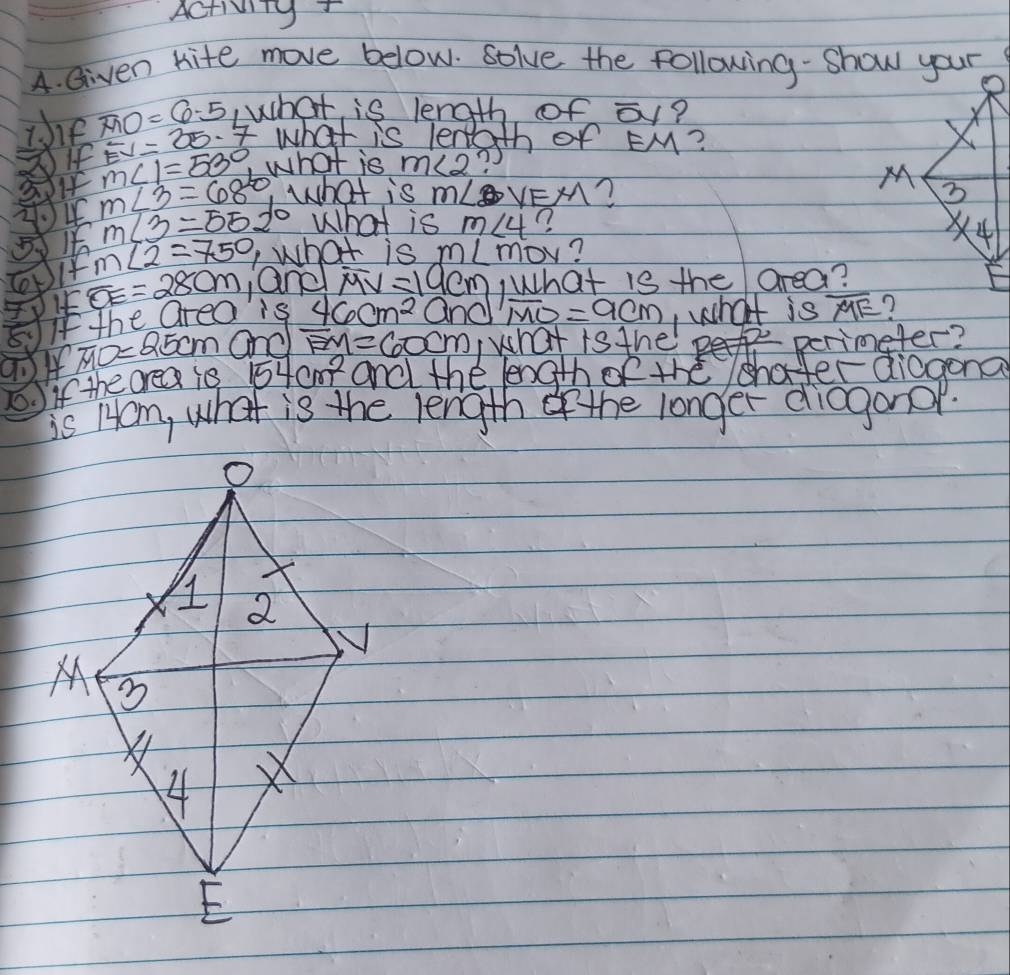 Activity
A. Given kite move below. Solve the following. Show your
1.) If MO = 6.5, what is length of OV?
2.) If EV = 25.7 what is length of EM?
3.) If m<1 = 53°, what is m<2?
4.) If m<3 = 68°, what is m∠VEM?
5.) If m<3 = 552° what is m<4?
6.) If m<2 = 750, what is m∠mov?
7.) If OE = 28cm, and MV = 19cm, what is the area?
8.) If the area is 46cm² and MO = 9cm, what is ME?
9.) If MO = 25cm and EM = 60cm, what is the perimeter?
10.) If the area is 154cm² and the length of the shorter diagona
is 14cm, what is the length of the longer diagonal.
O
M
3
4
E
O
1
2
V
M
3
4
E